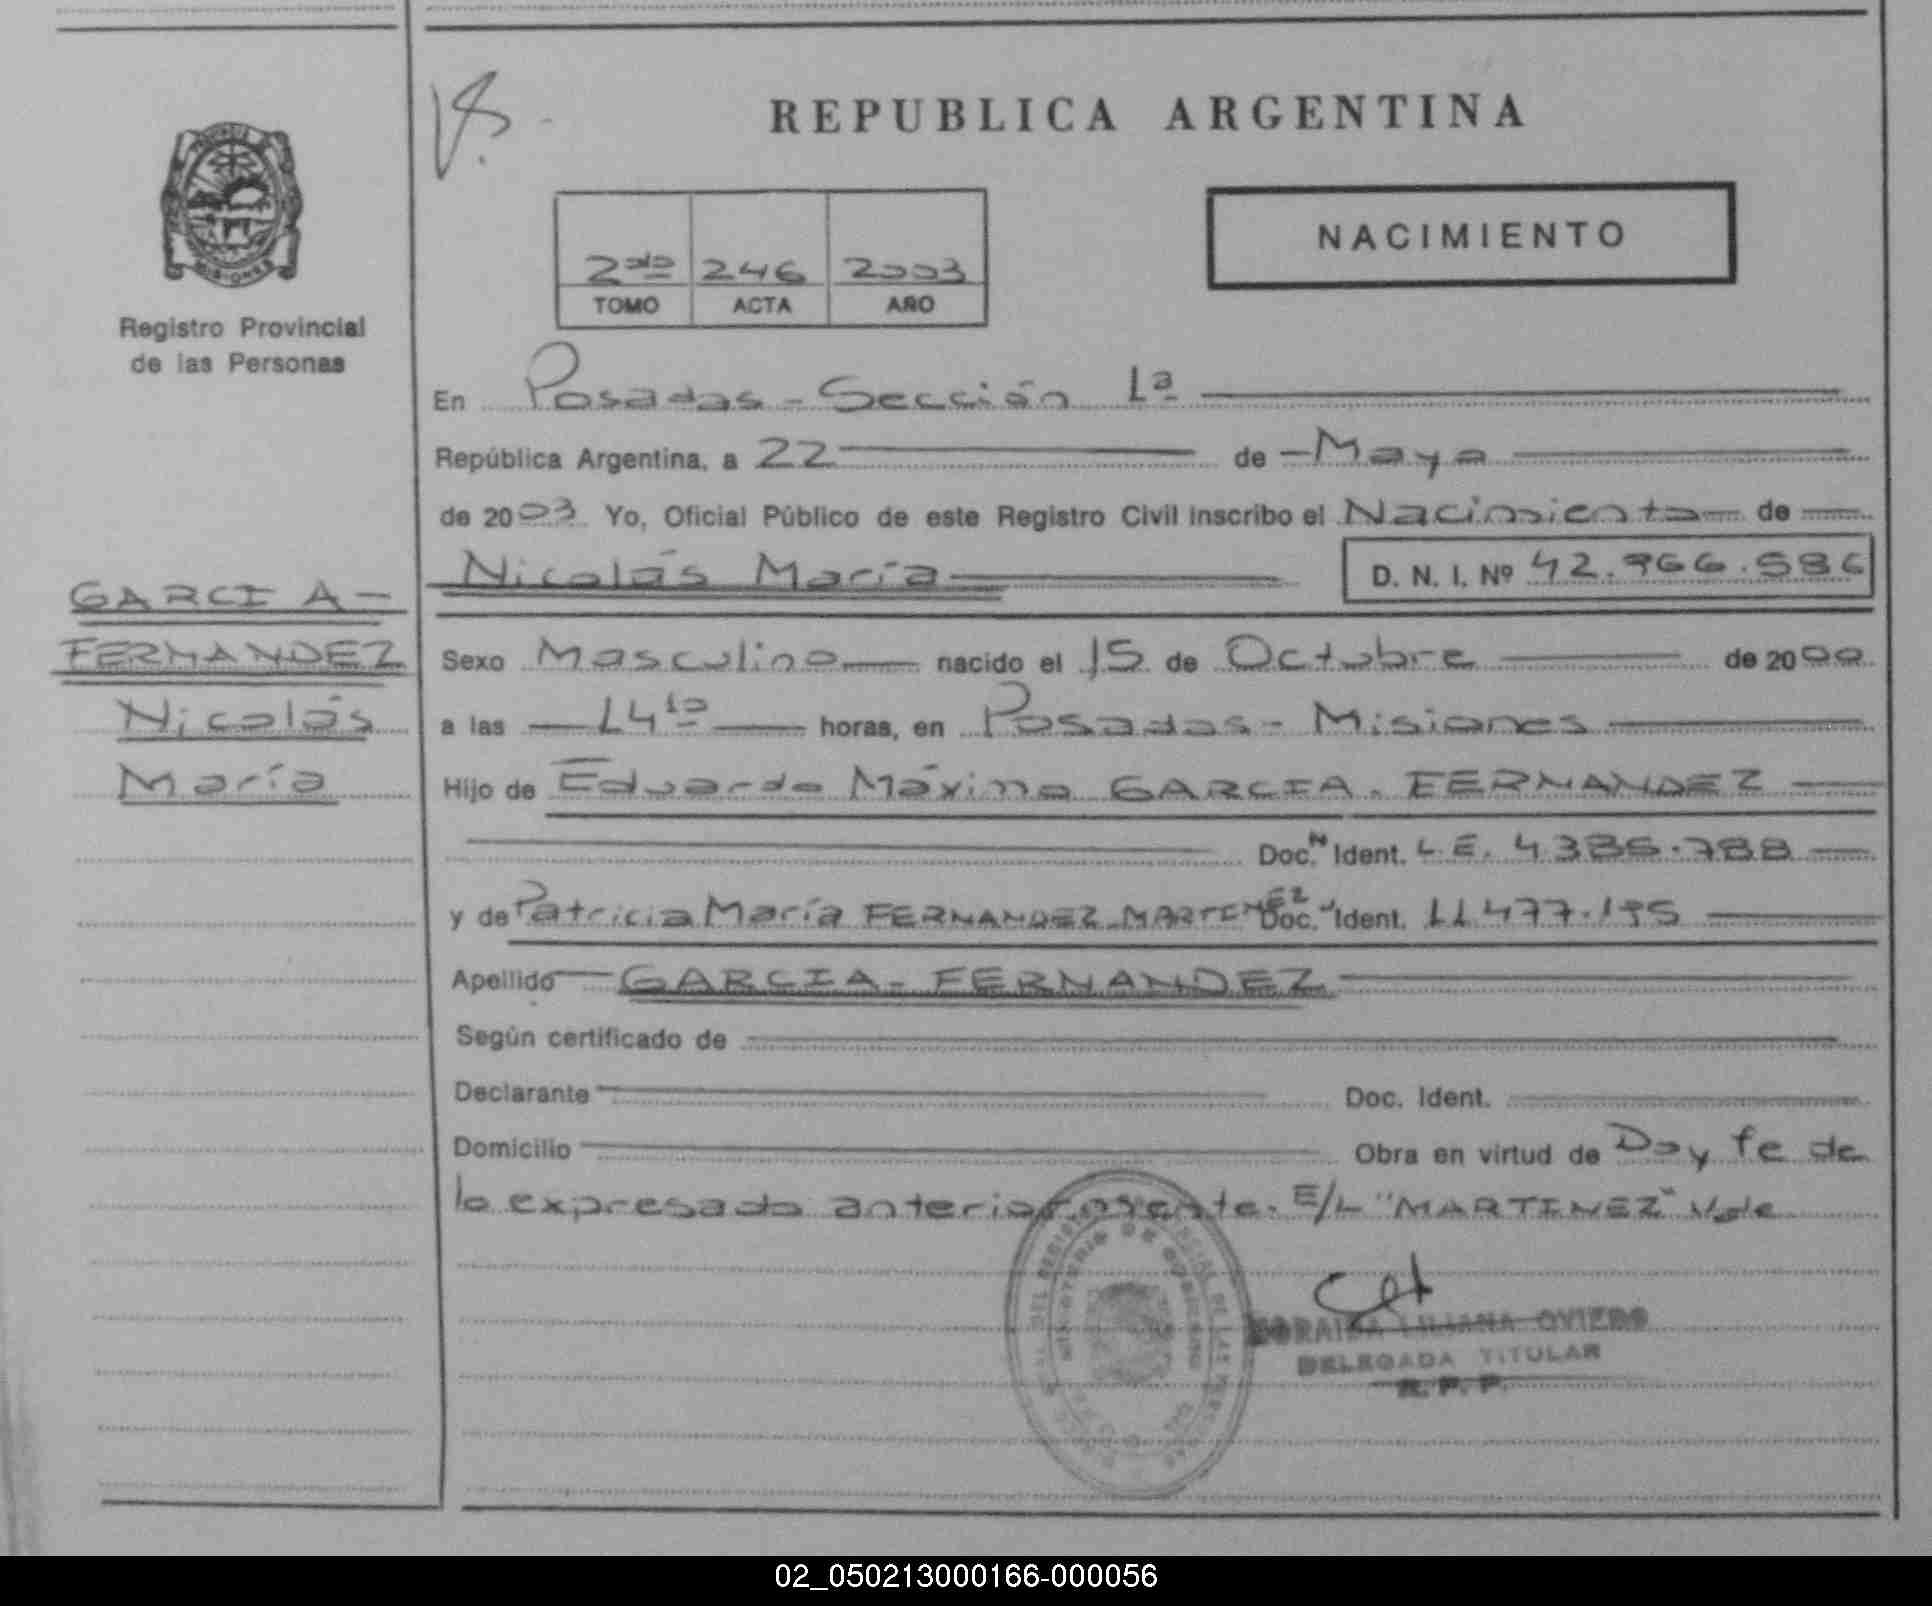 REPUBLICA ARGENTINA
NACIMIENTO
2do 246 2003
TOMO ACTA AÑO
MISIONES
Registro Provincial
de las Personas
En Posadas - Sección 1ª
República Argentina, a 22 de Mayo
de 2003 Yo, Oficial Público de este Registro Civil inscribo el Nacimiento de
Nicolás María D. N. I. Nº 42.966.586
GARCIA-
FERNANDEZ
Nicolás
María
Sexo Masculino nacido el 15 de Octubre de 2000
a las 14 10 horas, en Posadas - Misiones
Hijo de Eduardo Máximo GARCIA - FERNANDEZ
Doc. Ident. L.E. 4386.788
y de Patricia María FERNANDEZ MARTINEZ Doc. Ident. 11477.195
Apellido GARCIA - FERNANDEZ
Según certificado de
Declarante Doc. Ident.
Domicilio Obra en virtud de Doy fe de
lo expresado anteriormente. E/L "MARTINEZ" Vale
LILIANA OVIEDO
DELEGADA TITULAR
R. P. P.
02_050213000166-000056